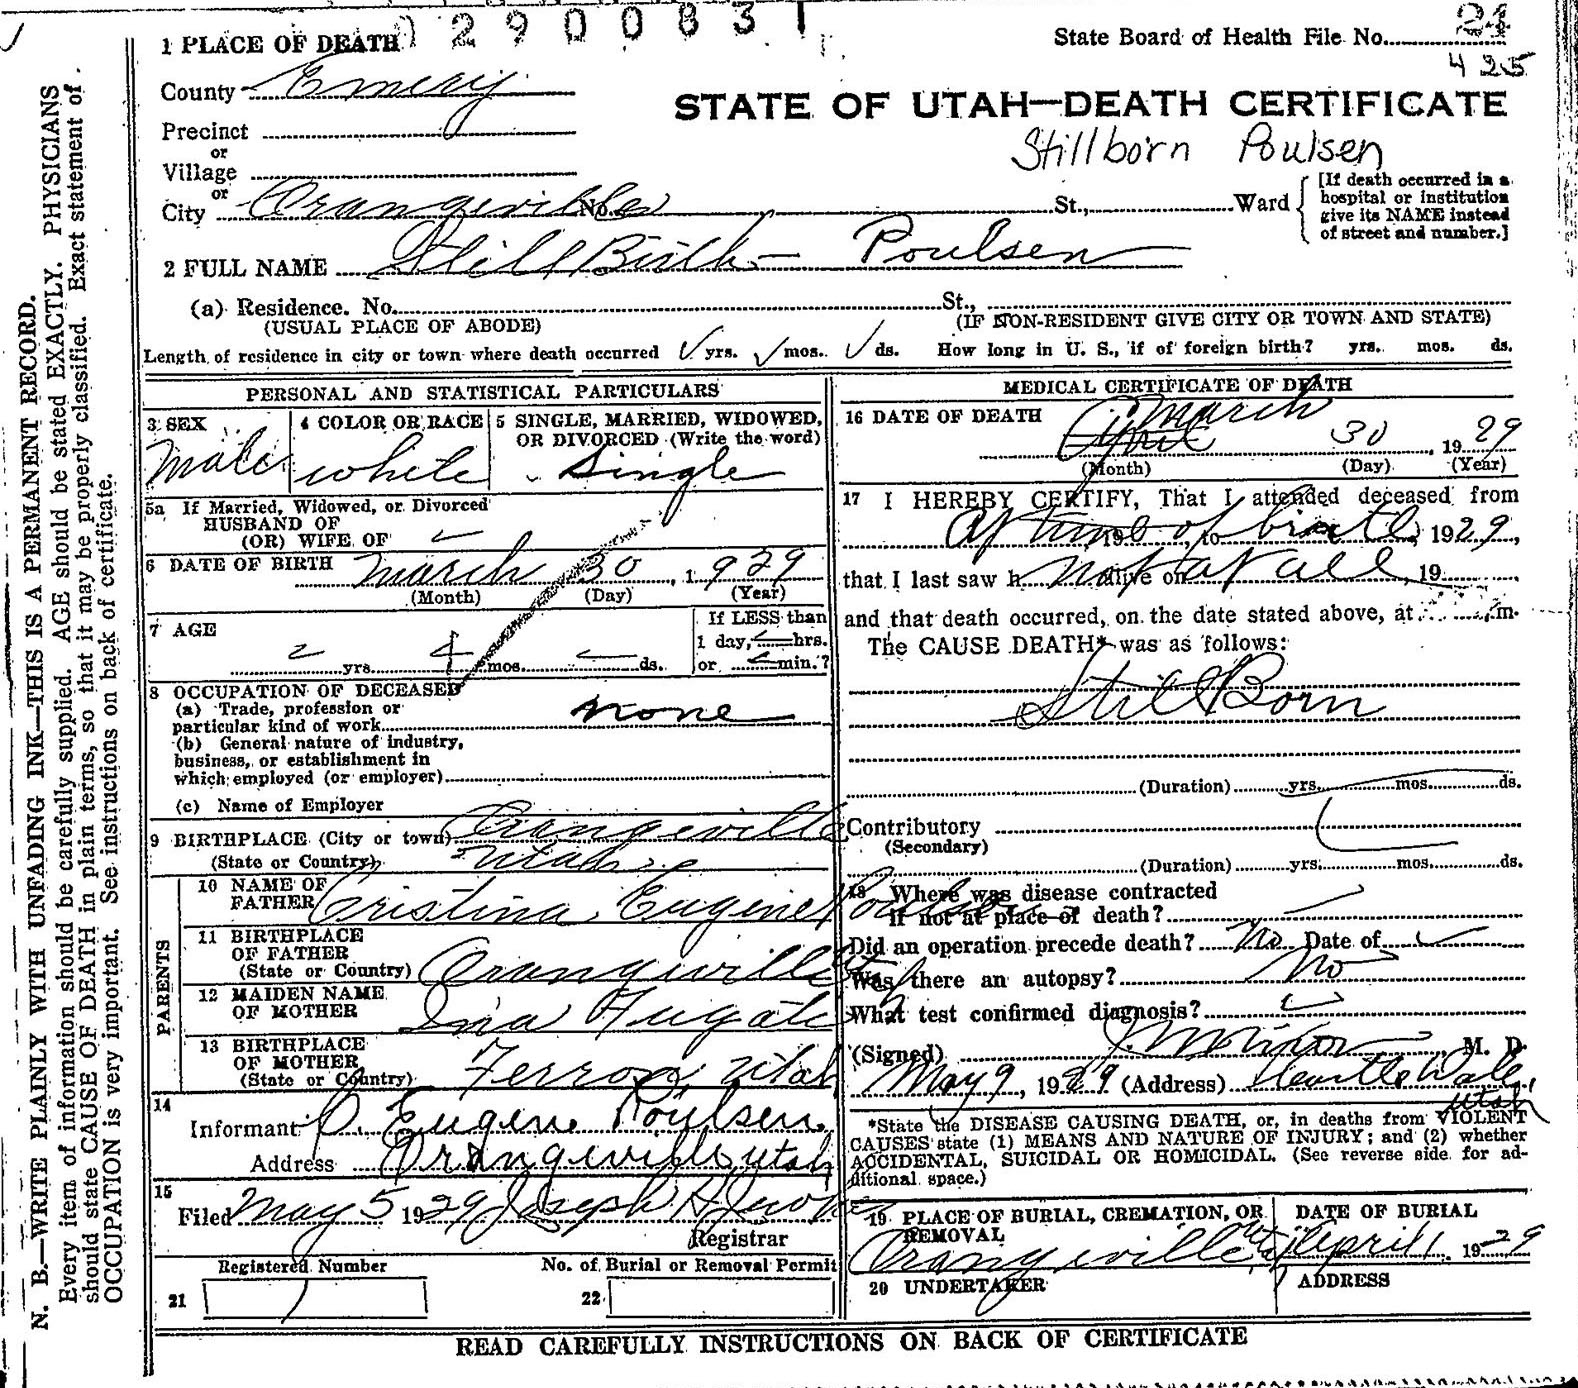 0290083
1 PLACE OF DEATH
State Board of Health File No. 21
425
County Emery
STATE OF UTAH—DEATH CERTIFICATE
Precinct
Stillborn Poulsen
or
Village
or
City Orangeville No. St., Ward
[If death occurred in a
hospital or institution
give its NAME instead
of street and number.]
2 FULL NAME Still Birth - Poulsen
(a) Residence. No. St.,
(USUAL PLACE OF ABODE) (IF NON-RESIDENT GIVE CITY OR TOWN AND STATE)
Length of residence in city or town where death occurred yrs. mos. ds. How long in U. S., if of foreign birth? yrs. mos. ds.
PERSONAL AND STATISTICAL PARTICULARS
3 SEX
Male
4 COLOR OR RACE
white
5 SINGLE, MARRIED, WIDOWED,
OR DIVORCED (Write the word)
Single
5a If Married, Widowed, or Divorced
HUSBAND OF
(OR) WIFE OF
6 DATE OF BIRTH March 30, 1929
(Month) (Day) (Year)
7 AGE
yrs. mos. ds.
If LESS than
1 day, hrs.
or min.?
8 OCCUPATION OF DECEASED
(a) Trade, profession or
particular kind of work none
(b) General nature of industry,
business, or establishment in
which employed (or employer)
(c) Name of Employer
9 BIRTHPLACE (City or town) Orangeville
(State or Country) Utah
PARENTS
10 NAME OF
FATHER Cristina Eugene Poulsen
11 BIRTHPLACE
OF FATHER
(State or Country) Orangeville Utah
12 MAIDEN NAME
OF MOTHER Ina Fugate
13 BIRTHPLACE
OF MOTHER
(State or Country) Ferron, Utah
14
Informant C. Eugene Poulsen
Address Orangeville Utah
15
Filed May 5 1929 Joseph H.
Registrar
Registered Number No. of Burial or Removal Permit
21 1 22
MEDICAL CERTIFICATE OF DEATH
16 DATE OF DEATH March
April 30, 1929
(Month) (Day) (Year)
17 I HEREBY CERTIFY, That I attended deceased from
At time of birth, 19 to 1929,
that I last saw h not alive on at all, 19
and that death occurred, on the date stated above, at m.
The CAUSE DEATH* was as follows:
Still Born
(Duration) yrs. mos. ds.
Contributory
(Secondary)
(Duration) yrs. mos. ds.
18 Where was disease contracted
if not at place of death?
Did an operation precede death? No Date of
Was there an autopsy? No
What test confirmed diagnosis?
(Signed) M. D.
May 9, 1929 (Address)
Utah
*State the DISEASE CAUSING DEATH, or, in deaths from VIOLENT
CAUSES state (1) MEANS AND NATURE OF INJURY; and (2) whether
ACCIDENTAL, SUICIDAL OR HOMICIDAL. (See reverse side for ad-
ditional space.)
19 PLACE OF BURIAL, CREMATION, OR
REMOVAL
Orangeville Utah
DATE OF BURIAL
April 1, 1929
20 UNDERTAKER
ADDRESS
READ CAREFULLY INSTRUCTIONS ON BACK OF CERTIFICATE
N. B.—WRITE PLAINLY WITH UNFADING INK—THIS IS A PERMANENT RECORD.
Every item of information should be carefully supplied. AGE should be stated EXACTLY. PHYSICIANS
should state CAUSE OF DEATH in plain terms, so that it may be properly classified. Exact statement of
OCCUPATION is very important. See instructions on back of certificate.